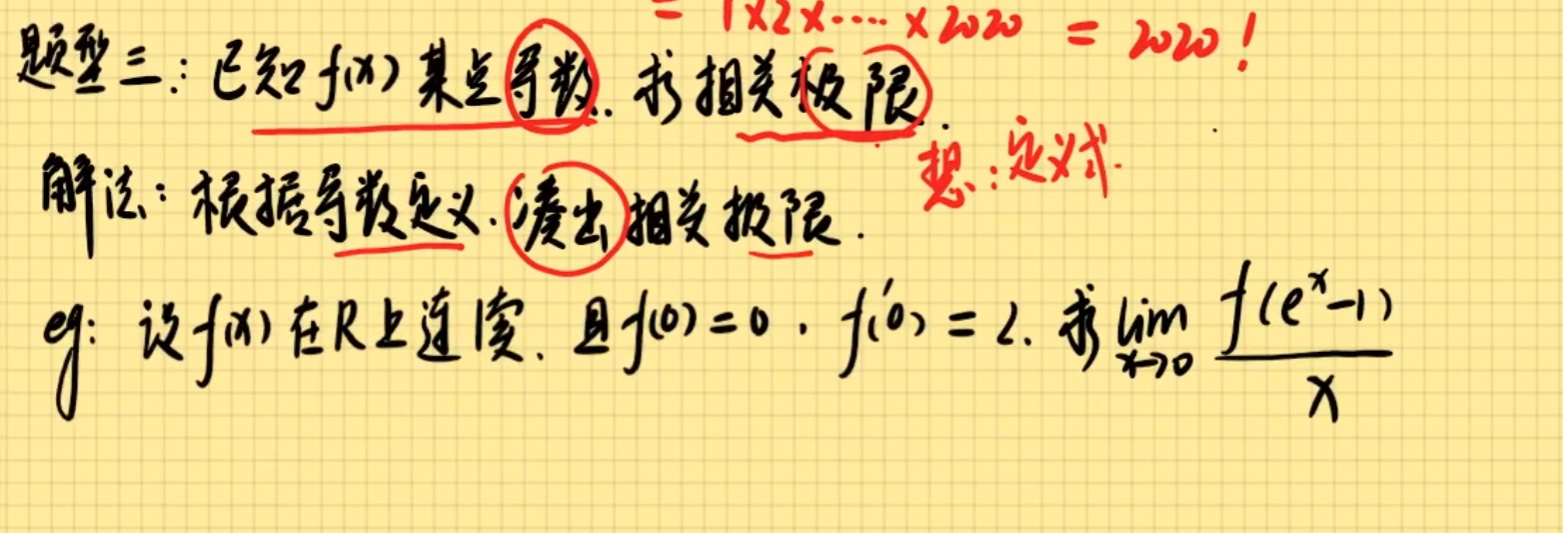 = 1×2×····×2020 = 2020!
题型三: 已知f(x)某点导数. 求相关极限.
想:定义式.
解法: 根据导数定义.凑出相关极限.
eg: 设f(x)在R上连续. 且f(0)=0. f'(0)=2. 求 lim x→0 f(e^x-1)/x